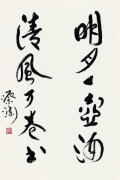 明月一壺酒
清风万卷书